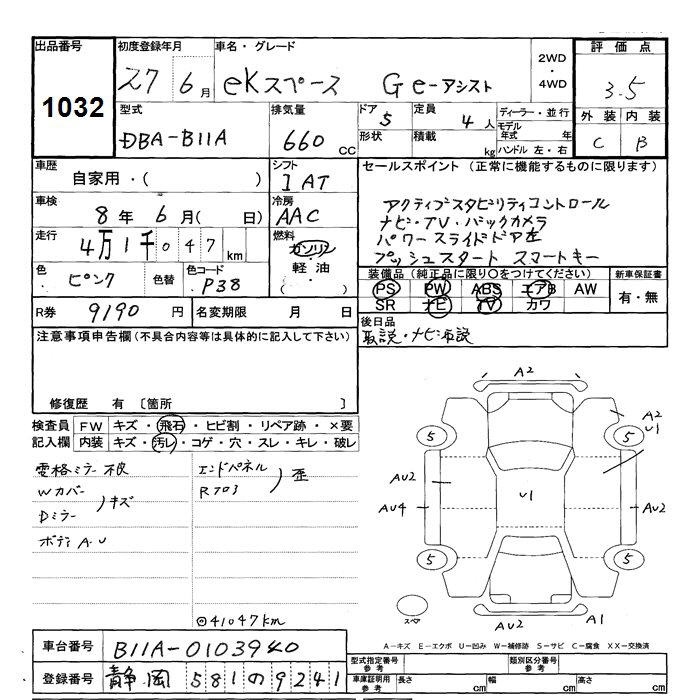 出品番号 初度登録年月 車名・グレード 2WD・4WD 評価点
1032 27 6月 eKスペース Ge-アシスト 3.5
型式 排気量 ドア 5 定員 4人 ディーラー・並行 外装 内装
DBA-B11A 660 CC 形状 積載 kg モデル年式 年 C B
ハンドル 左・右
車歴 自家用・( ) シフト I AT セールスポイント (正常に機能するものに限ります)
車検 8年 6月( 日) 冷房 AAC アクティブスタビリティコントロール
ナビ・TV・バックカメラ
走行 4万1千047km 燃料 ガソリン パワースライドドア左
軽油 プッシュスタート スマートキー
( )
色 ピンク 色替 色コード P38 装備品 (純正品に限り○をつけてください) 新車保証書
PS PW ABS エアB AW 有・無
R券 9190円 名変期限 月 日 SR ナビ TV カワ
注意事項申告欄(不具合内容等は具体的に記入して下さい) 後日品
取説・ナビ取説
修復歴 有 〔箇所 〕
検査員 FW キズ・飛石・ヒビ割・リペア跡・×要
記入欄 内装 キズ・汚レ・コゲ・穴・スレ・キレ・破レ
電格ミラー不良 エンドパネル
Wカバー キズ Rフロア 歪
Dミラー
ボディA.U
◎41047km
A2
A2
U1
5 5
AU2
U1
AU4 AU2
5 5
スペア
AU2 A1
A-キズ E-エクボ U-凹み W-補修跡 S-サビ C-腐食 XX-交換済
車台番号 B11A-0103940 型式指定番号 参考 類別区分番号 参考
登録番号 静岡 581の9241 車庫証明用 参考 長さ cm 幅 cm 高さ cm